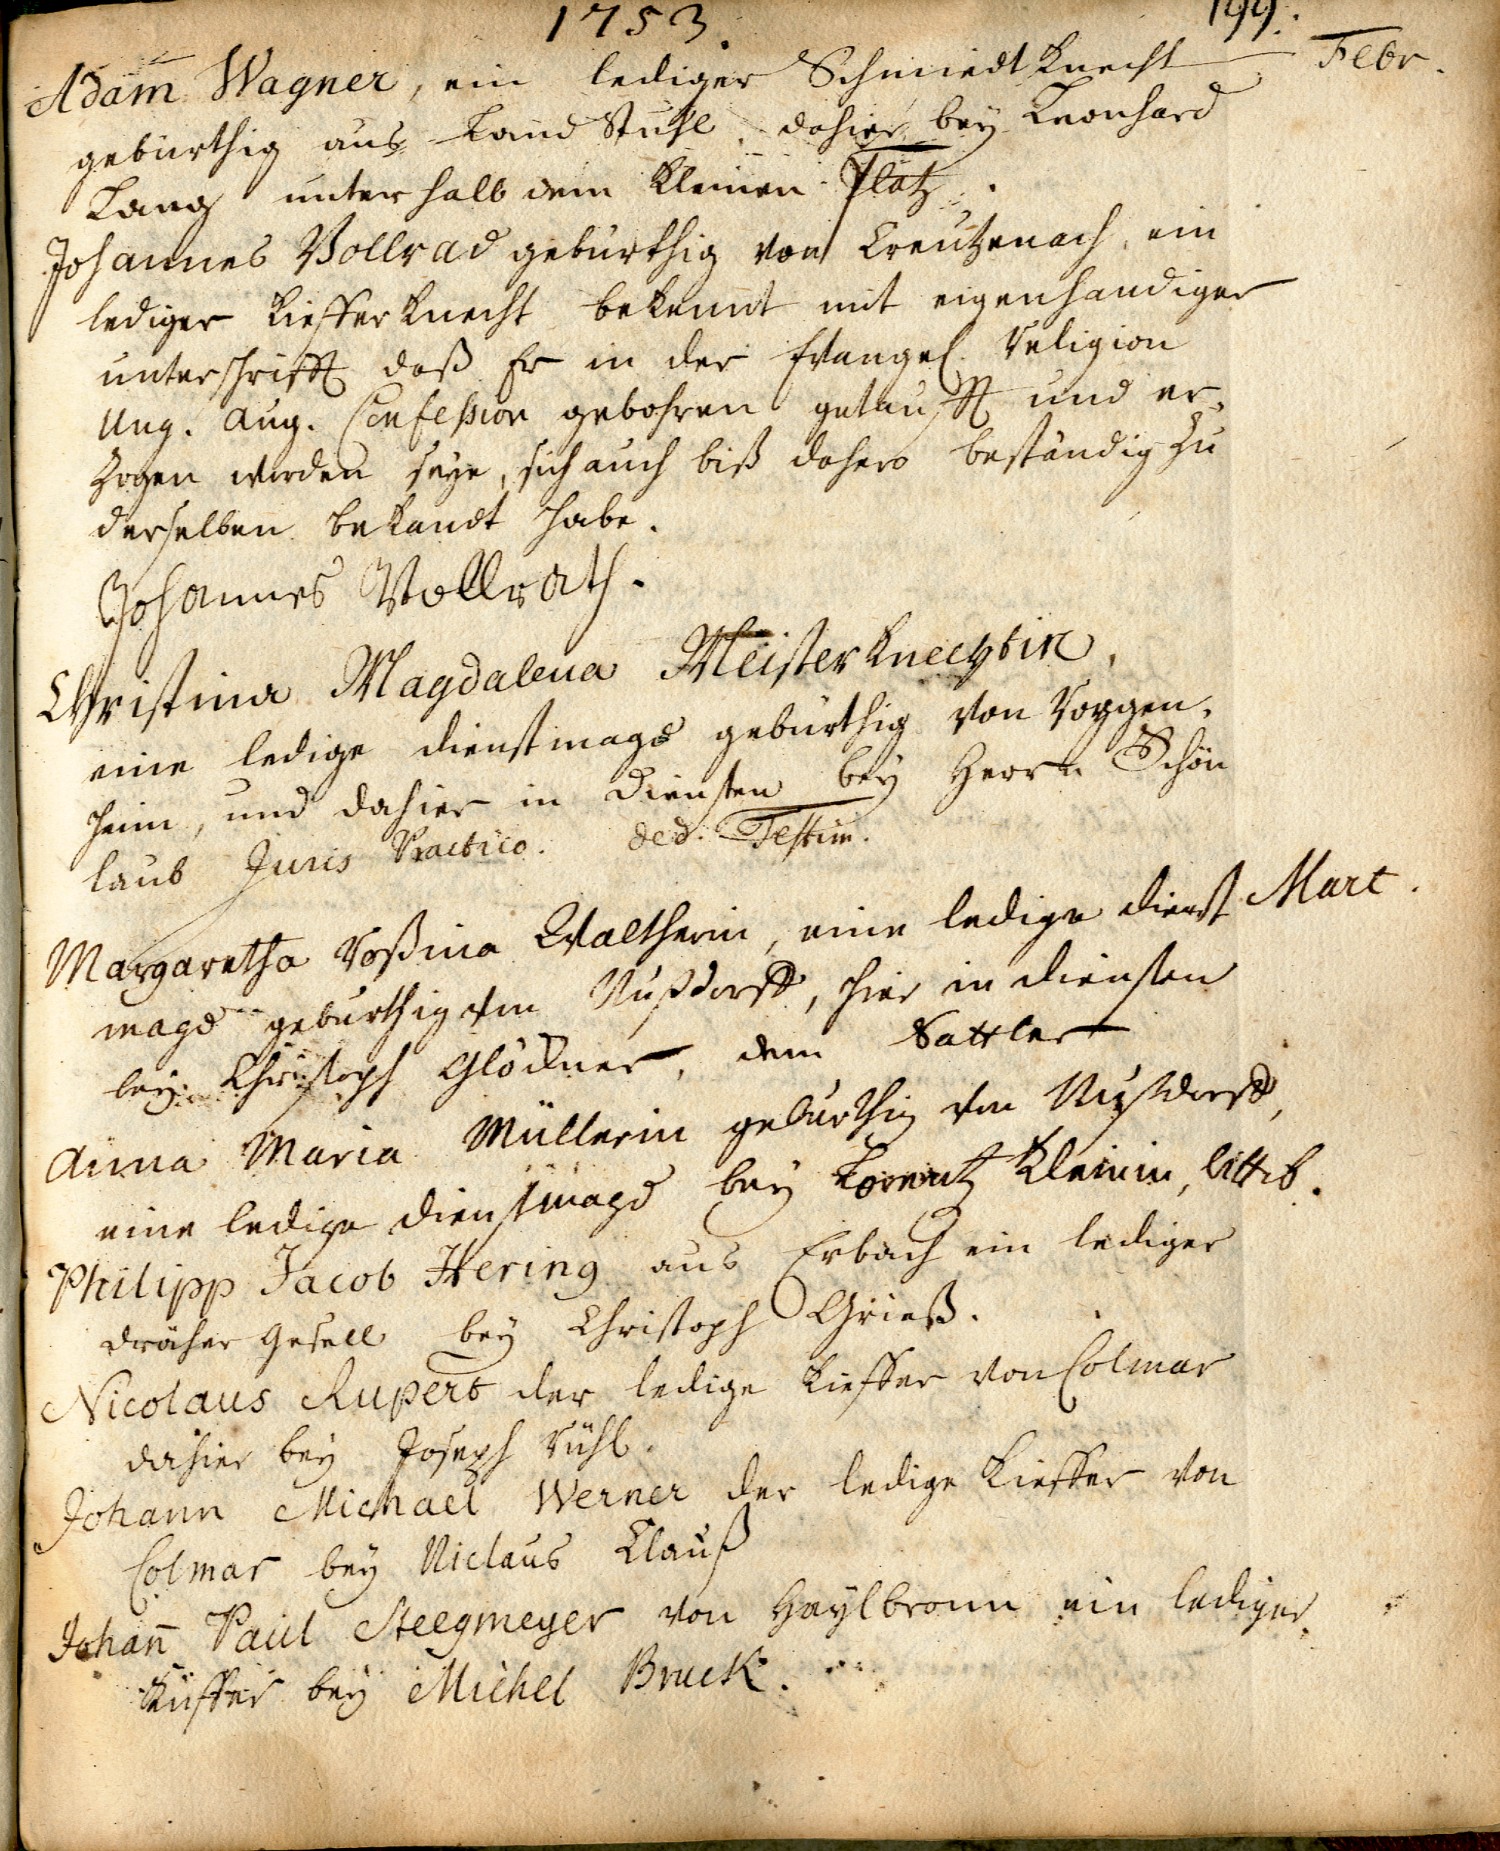 1753. 199.
Adam̄ Wagner, ein lediger Schmiedt Knecht Febr.
gebürthig aus Land Stuhl dahier bey Leonhard
Lang unterhalb dem kleinen Platz.
Johannes Vollrad gebürthig von Creutzenach, ein
lediger Kieffer Knecht bekennt mit eigenhandiger
unterschrifft daß Er in der Evangel. Religion
Ung. Aug. Confession gebohren getaufft und er-
zogen worden seye, sich auch biß dahero beständig zu
derselben bekandt habe.
Johannes Vollrath.
Christina Magdalena Meisterknechtin,
eine ledige dienstmagd gebürthig von Roggen-
heim, und dahier in Diensten bey Herrn Schön
laub Juris Practico. ded. Testim.
Margaretha Roßina Waltherin, eine ledige dienst Mart.
magd gebürthig von Nußdorff, hier in diensten
bey Christoph Glöckner, dem Sattler
Anna Maria Müllerin gebürthig von Nußdorff,
eine ledige dienstmagd bey Lorentz Kleinin, Wittib.
Philipp Jacob Hering aus Erbach ein lediger
Dräher Gesell bey Christoph Grieß.
Nicolaus Rupert der ledige Kieffer von Colmar
dahier bey Joseph Rühl.
Johann Michael Werner der ledige Kieffer von
Colmar bey Niclaus Clauß
Johan̄ Paul Steegmeyer von Haylbronn ein lediger
Küffer bey Michel Bruck.